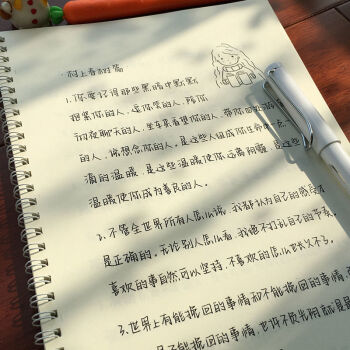 ·村上春树篇
1.你要记得那些黑暗中默默
抱紧你的人,逗你笑的人,陪你
彻夜聊天的人,坐车来看望你的人,带你四处游
的人,说想念你的人。是这些人组成你生命中一点一
滴的温暖,是这些温暖使你远离阴霾,是这些
温暖使你成为善良的人。
2.不管全世界所有人怎么说,我都认为自己的感受才
是正确的。无论别人怎么看,我绝不打乱自己的节奏。
喜欢的事自然可以坚持,不喜欢的怎么也长久不了。
3.世界上有能挽回的事情和不能挽回的事情,而
能挽回的事情,